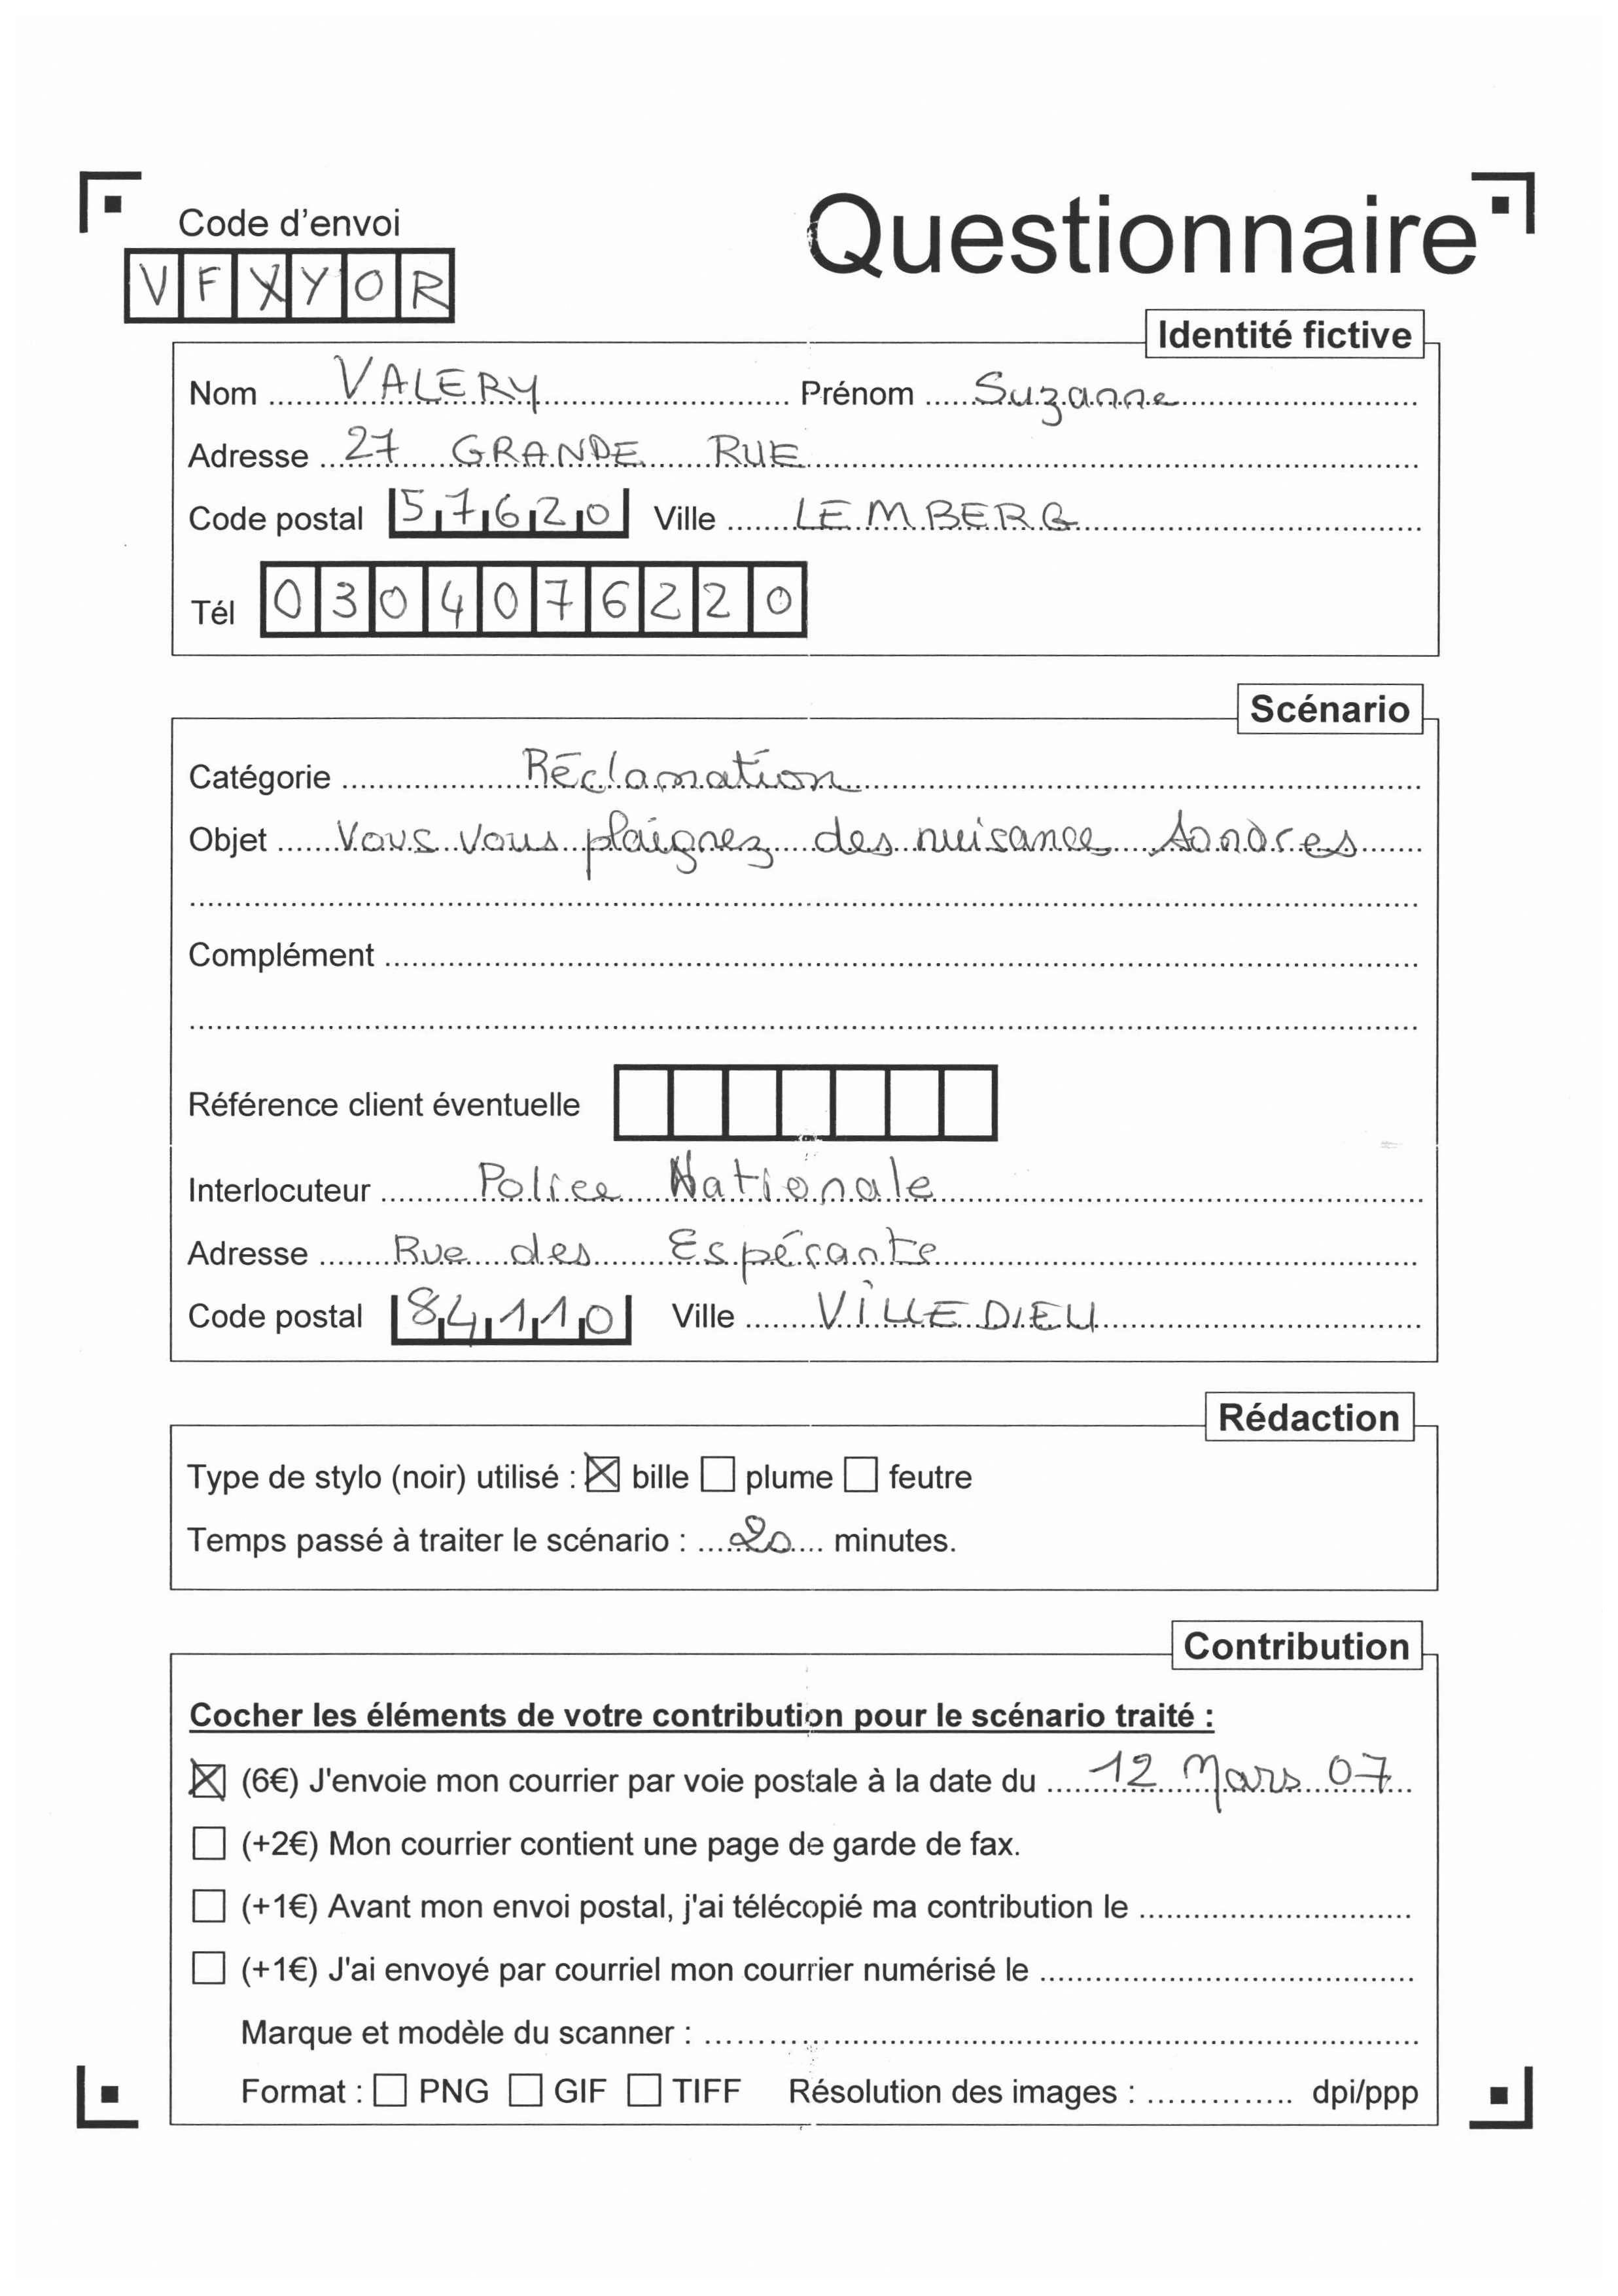 Code d'envoi
VFXYOR
Questionnaire
Identité fictive
Nom VALERY Prénom Suzanne
Adresse 27 GRANDE RUE
Code postal 57620 Ville LEMBERG
Tél 0304076220
Scénario
Catégorie Réclamation
Objet Vous vous plaignez des nuisance sonores
Complément
Référence client éventuelle
Interlocuteur Police Nationale
Adresse Rue des Espérante
Code postal 84110 Ville VILLEDIEU
Rédaction
Type de stylo (noir) utilisé : ☒ bille ☐ plume ☐ feutre
Temps passé à traiter le scénario : 20 minutes.
Contribution
Cocher les éléments de votre contribution pour le scénario traité :
☒ (6€) J'envoie mon courrier par voie postale à la date du 12 Mars 07
☐ (+2€) Mon courrier contient une page de garde de fax.
☐ (+1€) Avant mon envoi postal, j'ai télécopié ma contribution le
☐ (+1€) J'ai envoyé par courriel mon courrier numérisé le
Marque et modèle du scanner :
Format : ☐ PNG ☐ GIF ☐ TIFF Résolution des images : dpi/ppp